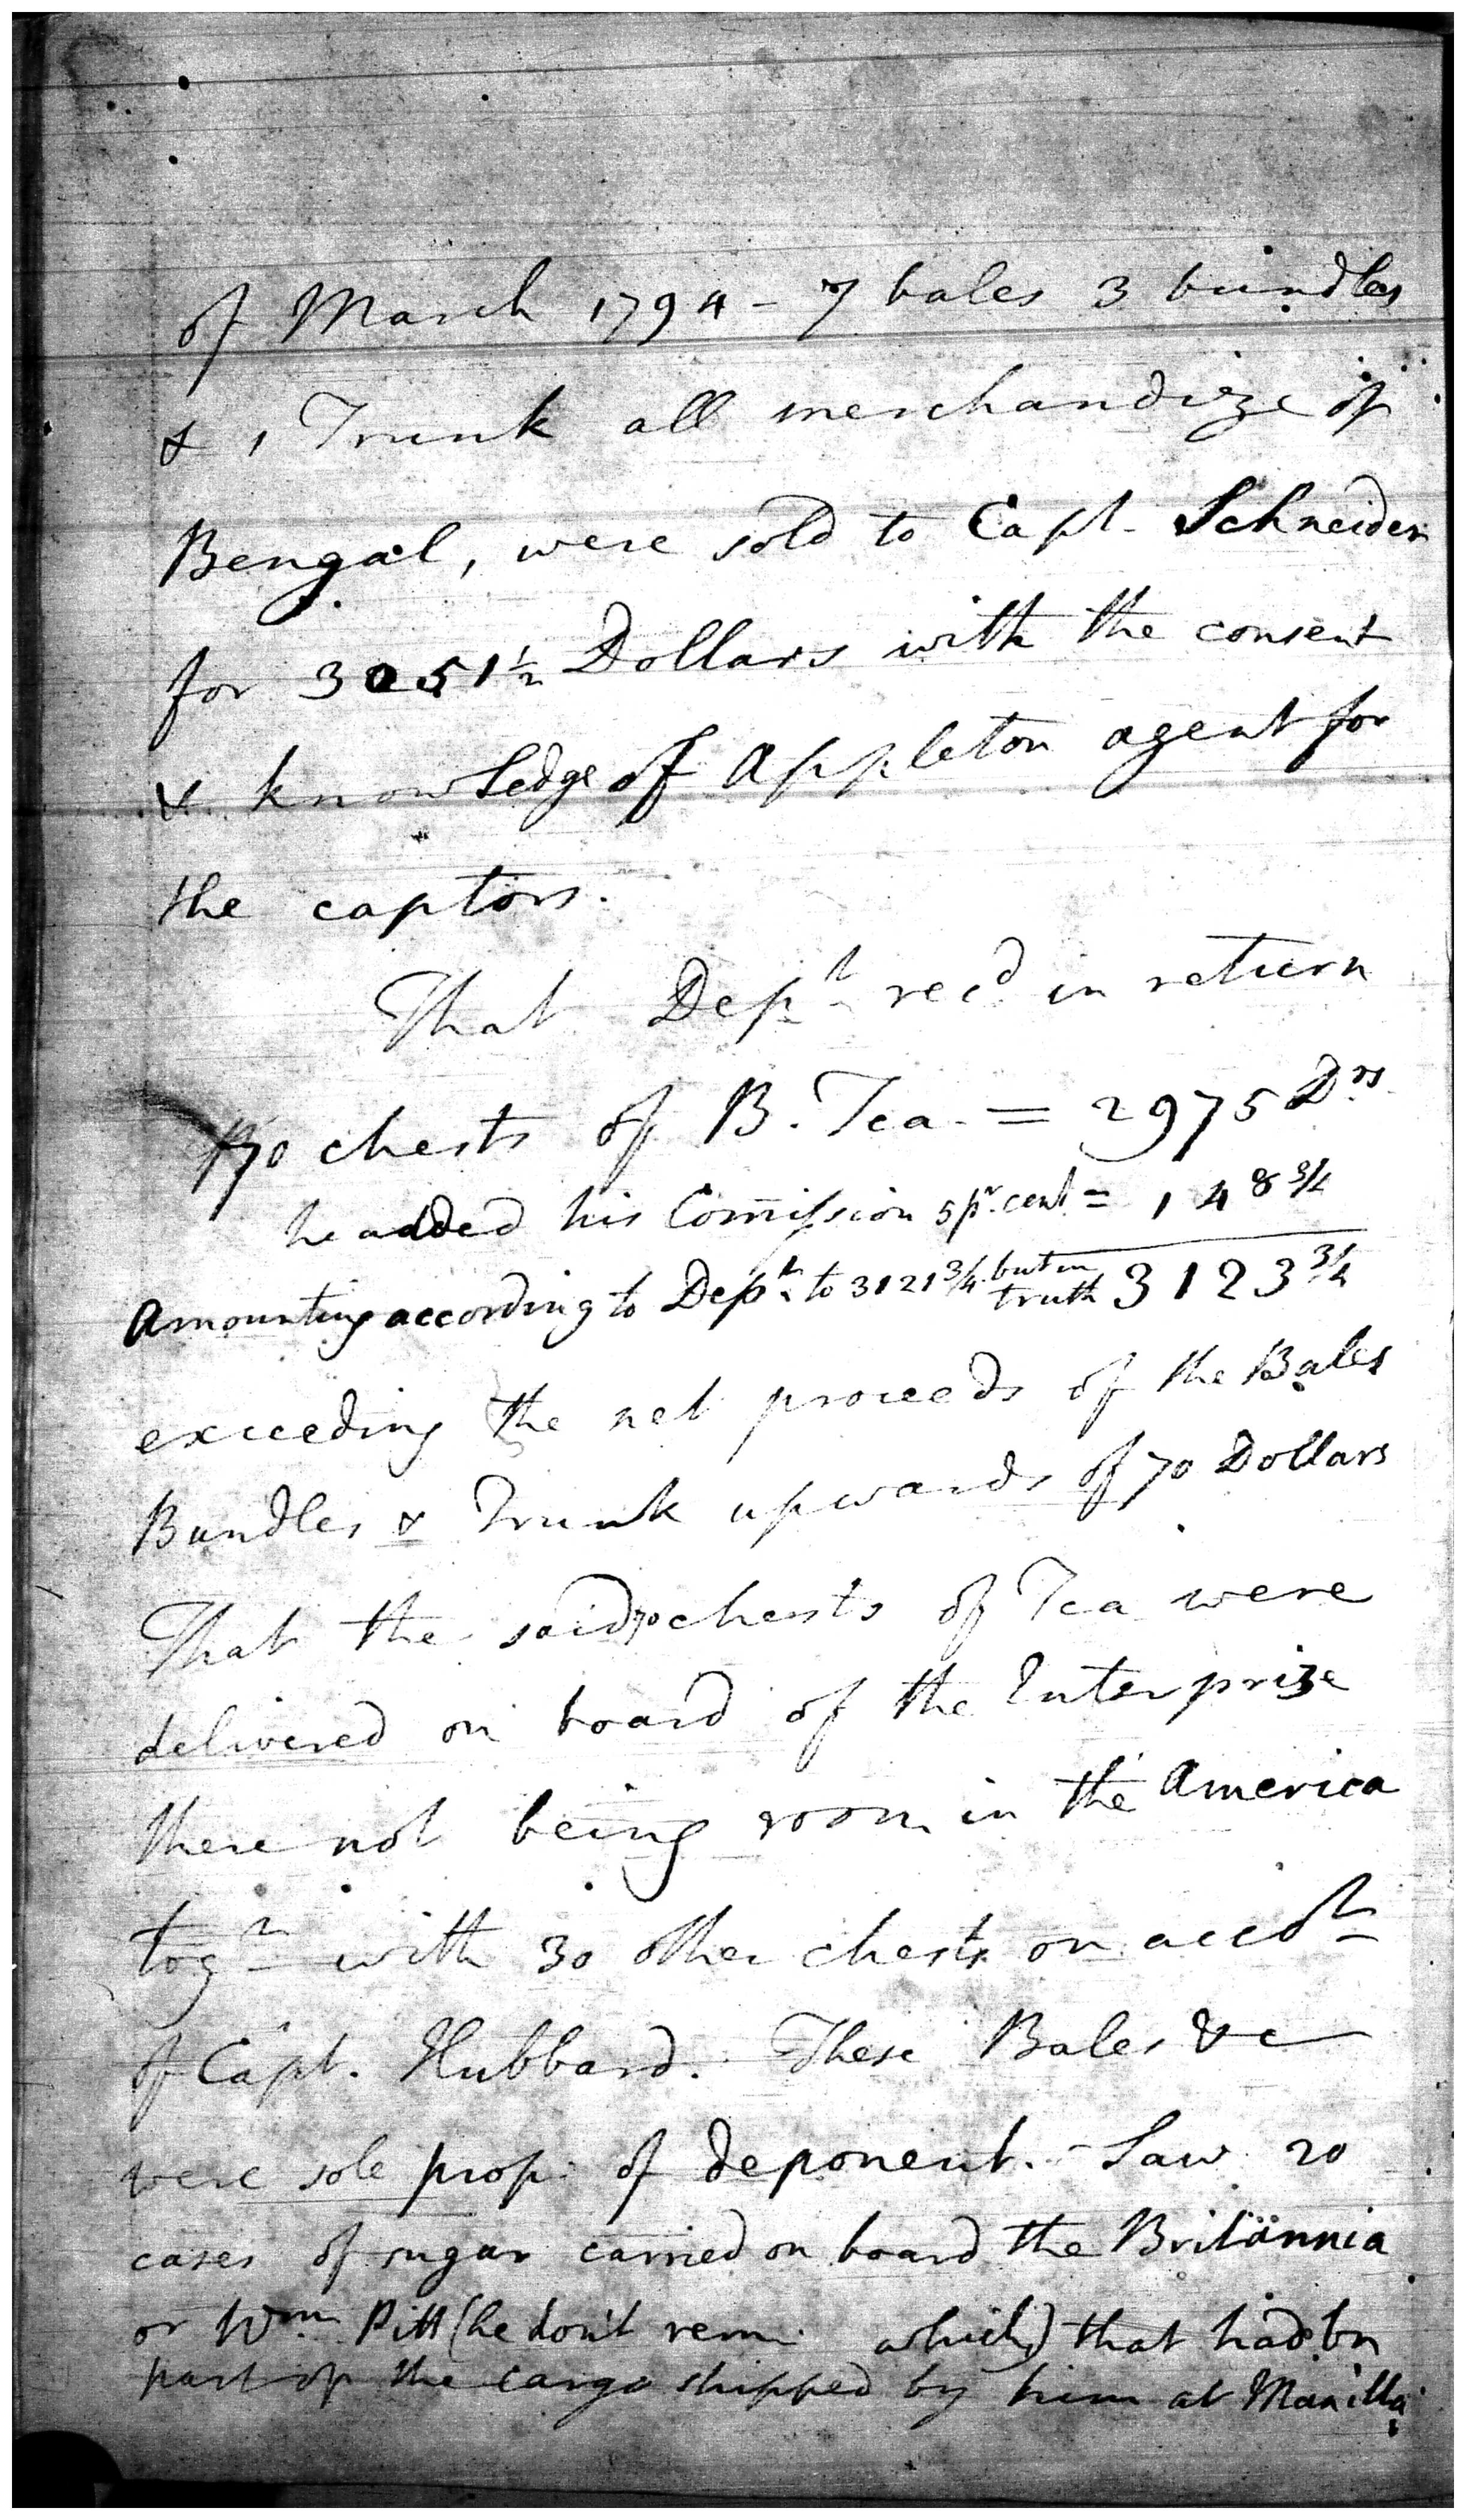 of March 1794 - 7 bales 3 bundles
& 1 Trunk all merchandize of
Bengal, were sold to Capt. Schneider
for 3051½ Dollars with the consent
& knowledge of Appleton agent for
the captors.
That Dept. recd. in return
170 chests of B. Tea = 2975 Drs.
he added his Comission 5 pr. cent. = 148¾
Amounting according to Dept. to 3121¾ but in truth 3123¾
exceeding the net proceeds of the Bales
Bundles & Trunk upwards of 70 Dollars
That the said 70 chests of Tea were
delivered on board of the Enterprize
there not being room in the America
togr. with 30 other chests on accot.
of Capt. Hubbard. These Bales &c
were sole prop. of deponent. - Saw 20
cases of sugar carried on board the Britannia
or Wm. Pitt (he don't rem. which) that had bn
part of the cargo shipped by him at Manilla